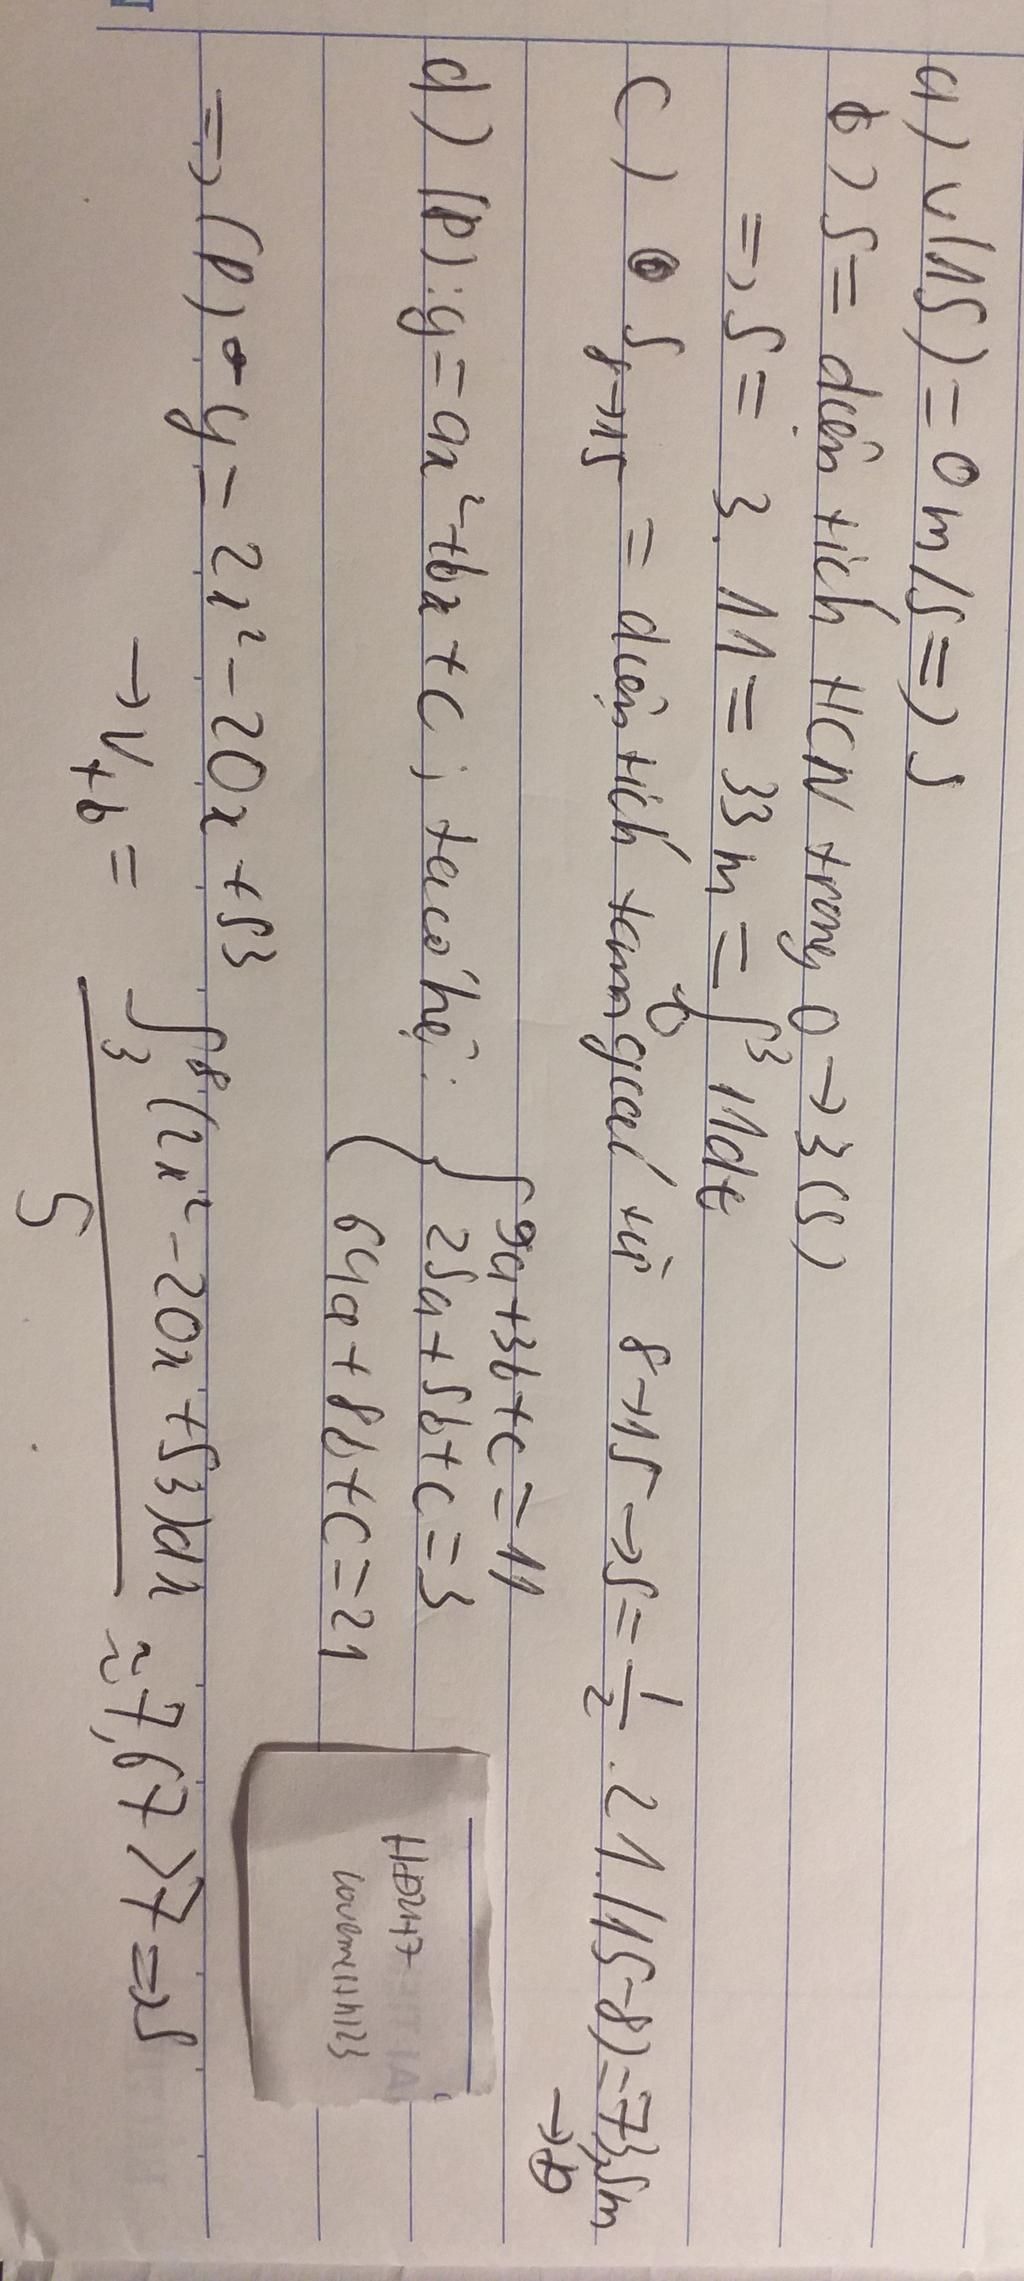 a) v(15) = 0 m/s => S
b) S = diện tích HCN trong 0 → 3 (s)
=> S = 3. 11 = 33 m = ∫₀³ 11dt → Đ
c) S₈→₁₅ = diện tích tam giác từ 8→15 → S = 1/2 . 21. (15-8) = 73,5m → Đ
d) (P): y = ax² + bx + c, ta có hệ: { 9a + 3b + c = 11
25a + 5b + c = 3
64a + 8b + c = 21
=> (P) y = 2x² - 20x + 53
→ Vtb = ∫₃⁸ (2x² - 20x + 53)dx / 5 ≈ 7,67 > 7 => S